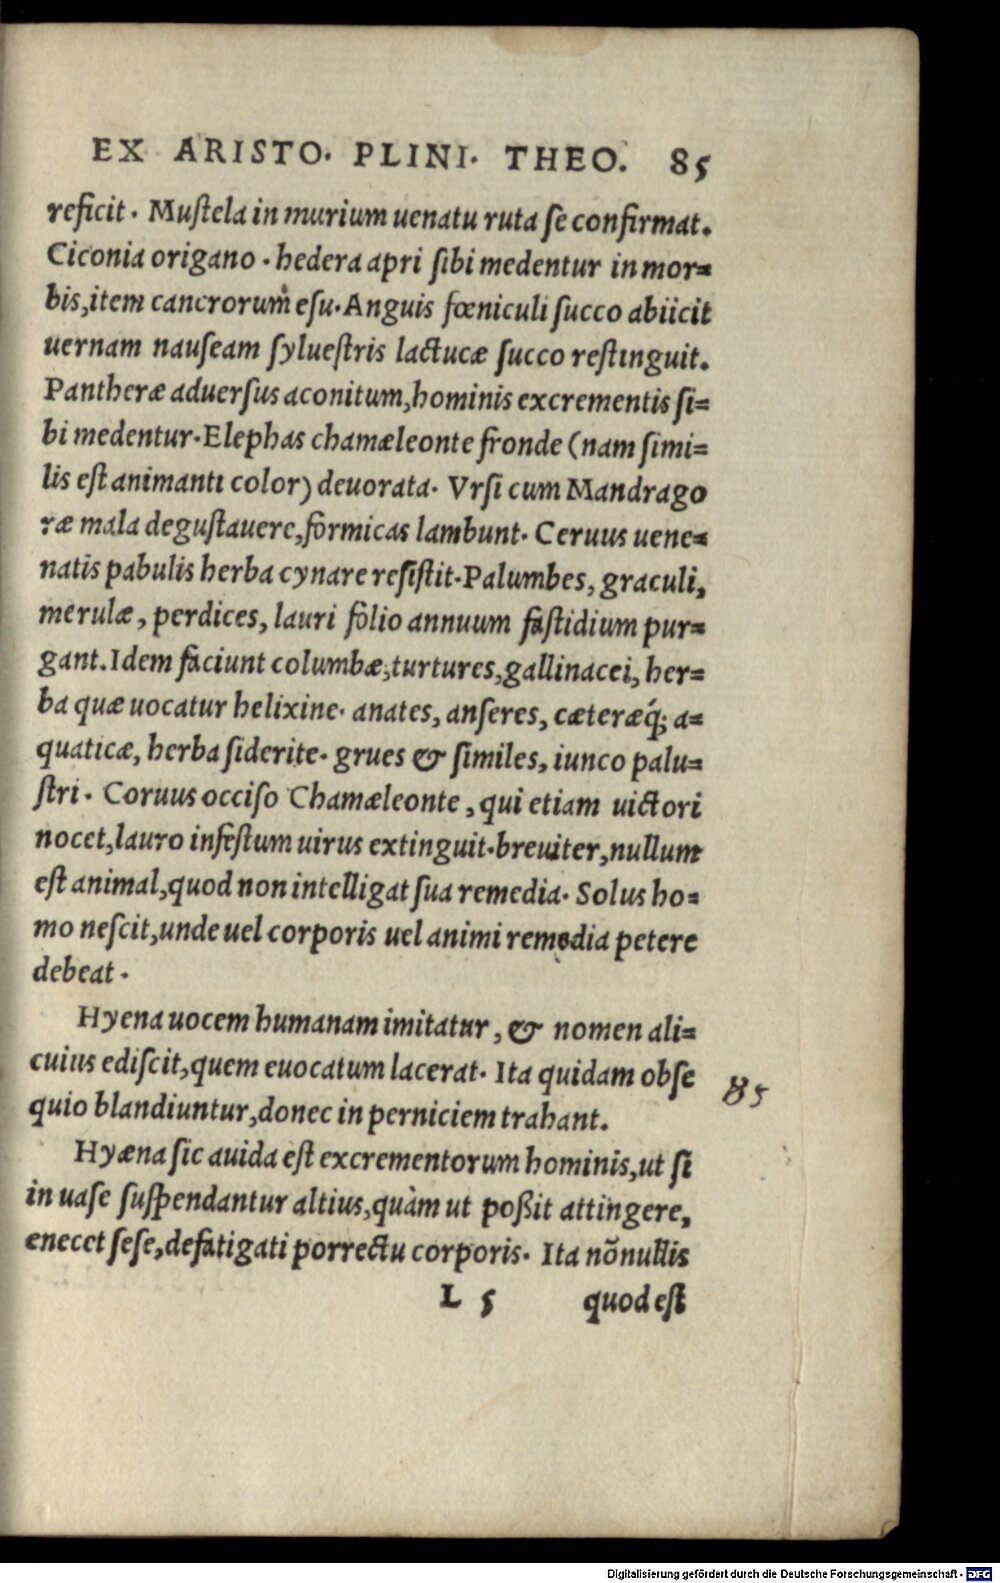 EX ARISTO. PLINI. THEO. 85
reficit. Muſtela in murium uenatu ruta ſe confirmat.
Ciconia origano. hedera apri ſibi medentur in mor=
bis, item cancrorum eſu. Anguis fœniculi ſucco abiicit
uernam nauſeam ſylueſtris lactucæ ſucco reſtinguit.
Pantheræ aduerſus aconitum, hominis excrementis ſi=
bi medentur. Elephas chamæleonte fronde (nam simi=
lis eſt animanti color) deuorata. Vrſi cum Mandrago
ræ mala deguſtauere, formicas lambunt. Ceruus uene=
natis pabulis herba cynare reſiſtit. Palumbes, graculi,
merulæ, perdices, lauri folio annuum faſtidium pur=
gant. Idem faciunt columbæ, turtures, gallinacei, her=
ba quæ uocatur helixine. anates, anſeres, cæteræq́; a=
quaticæ, herba ſiderite. grues & ſimiles, iunco palu=
ſtri. Coruus occiſo Chamæleonte, qui etiam uictori
nocet, lauro infeſtum uirus extinguit. breuiter, nullum
eſt animal, quod non intelligat ſua remedia. Solus ho=
mo neſcit, unde uel corporis uel animi remedia petere
debeat.
Hyena uocem humanam imitatur, & nomen ali=
cuius ediſcit, quem euocatum lacerat. Ita quidam obſe
quio blandiuntur, donec in perniciem trahant.
85
Hyæna ſic auida eſt excrementorum hominis, ut ſi
in uaſe ſuſpendantur altius, quàm ut poßit attingere,
enecet ſeſe, defatigati porrectu corporis. Ita nõnullis
L 5 quod eſt
Digitalisierung gefördert durch die Deutsche Forschungsgemeinschaft - DFG